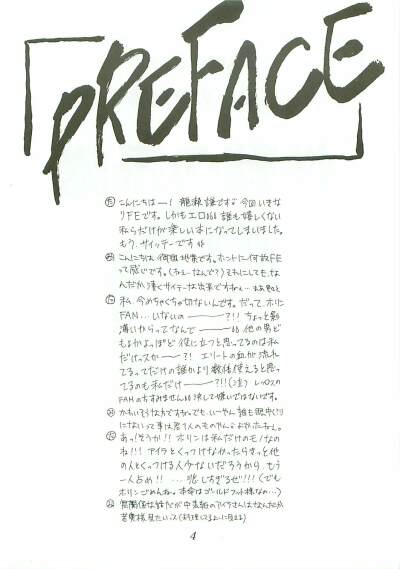 PREFACE
こんにちはー! 龍瀬 謙です 今回いきな
りFEです。しかもエロ 誰も嬉しくない
私らだけが楽しい本になってしまいました。
もう、サイッテーです
こんにちは、です。ホントに何故FE
って感じです。(なんで?) それにしても、な
んだか凄くサイテーな出来ですねえ…
私、今めちゃくちゃ切ないんです。だって、ホリン
FAN…いないの———?!! ちょっと影
薄いからってなんで——— 他の男ど
もよかよっぽど役に立つと思ってるのは私
だけッスか——?! エリートの血が流れ
てるってだけの誰かより数倍使えると思っ
てるのも私だけ———?!!(泣) レックスの
FANの方すみません 決して嫌いではないです。
かわいそうな方ですね。でも、いーやん 誰も眼中
にないって事は君1人のものやん
あっ!そうか!! ホリンは私だけのモノなの
ね!!! アイラとくっつけなかったらきっと他
の人とくっつける人少ないだろうから、もう
一人占め!! …悲しすぎるぜ!!! (でも
ホリンごめんね。本命はゴールドフット様なの…)
関係な話だが中表紙のアイラさんはなんだか
若奥様見たいっス(料理してるように見える)
4